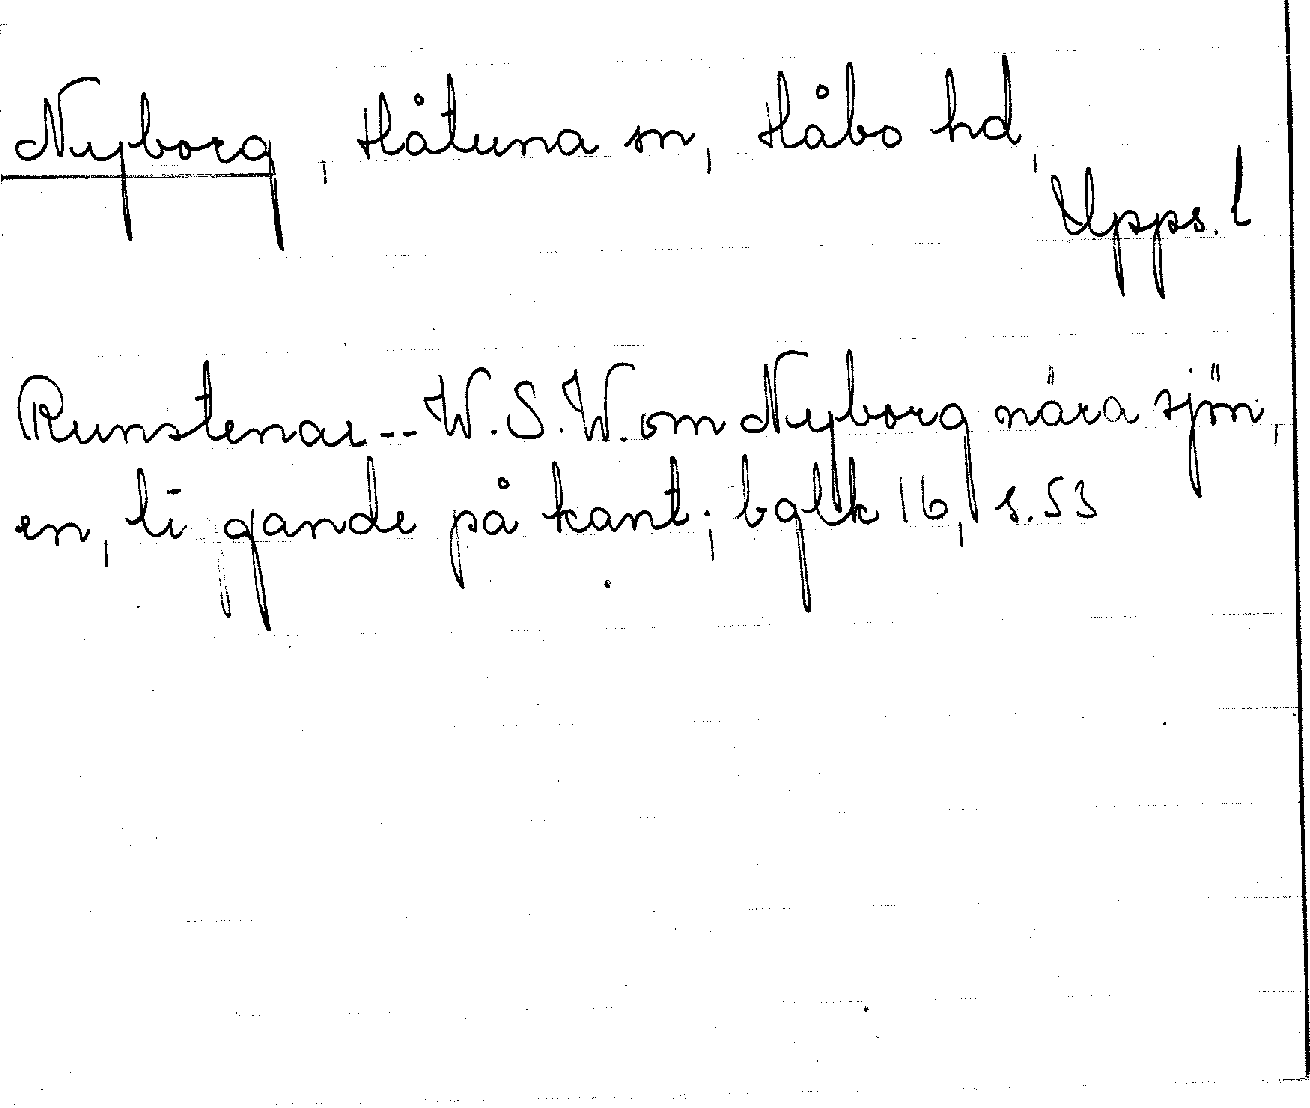 Nyborg, Håtuna sn, Håbo hd,
Upps. l
Runstenar -- W.S.W. om Nyborg nära sjön,
en, liggande på kant; bglk 16, s. 53